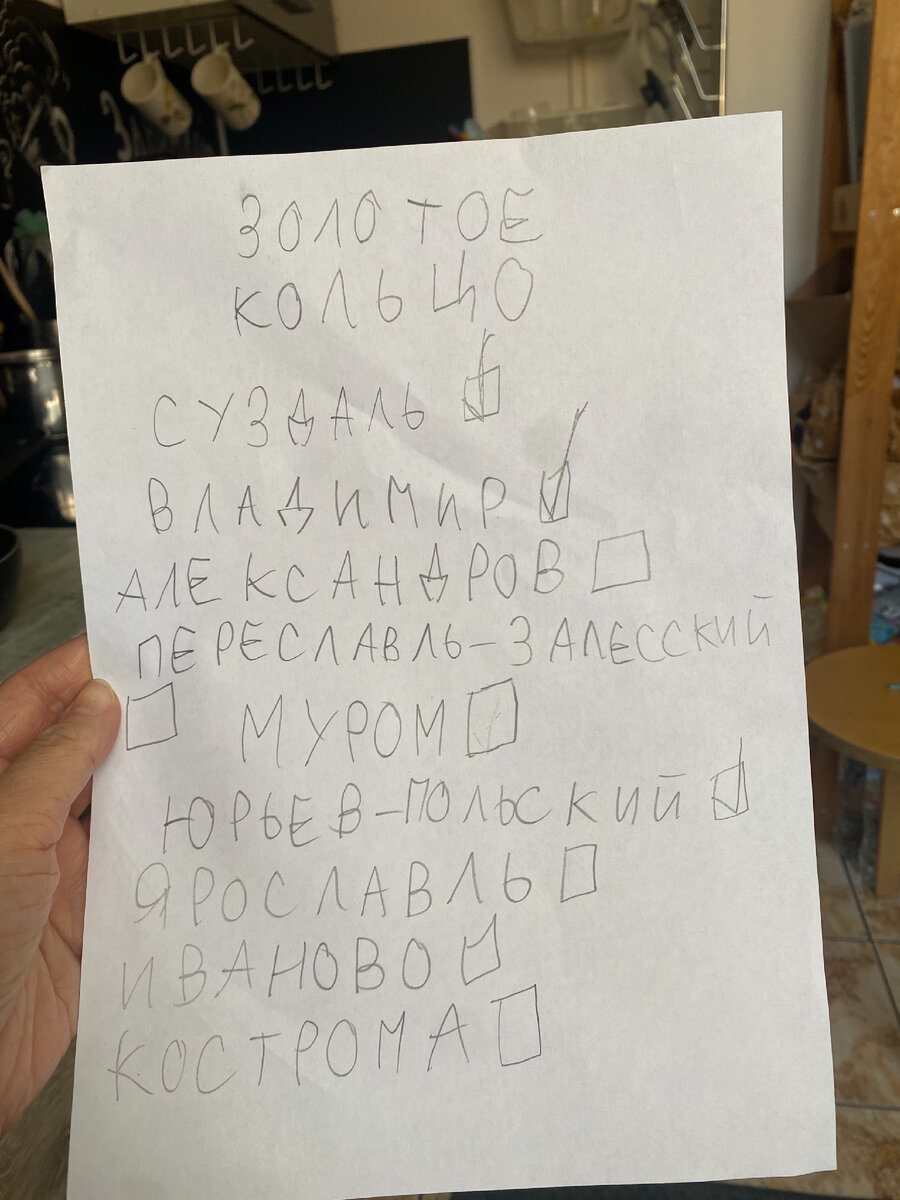 ЗОЛОТОЕ
КОЛЬЦО
СУЗДАЛЬ
ВЛАДИМИР
АЛЕКСАНДРОВ
ПЕРЕСЛАВЛЬ-ЗАЛЕССКИЙ
МУРОМ
ЮРЬЕВ-ПОЛЬСКИЙ
ЯРОСЛАВЛЬ
ИВАНОВО
КОСТРОМА